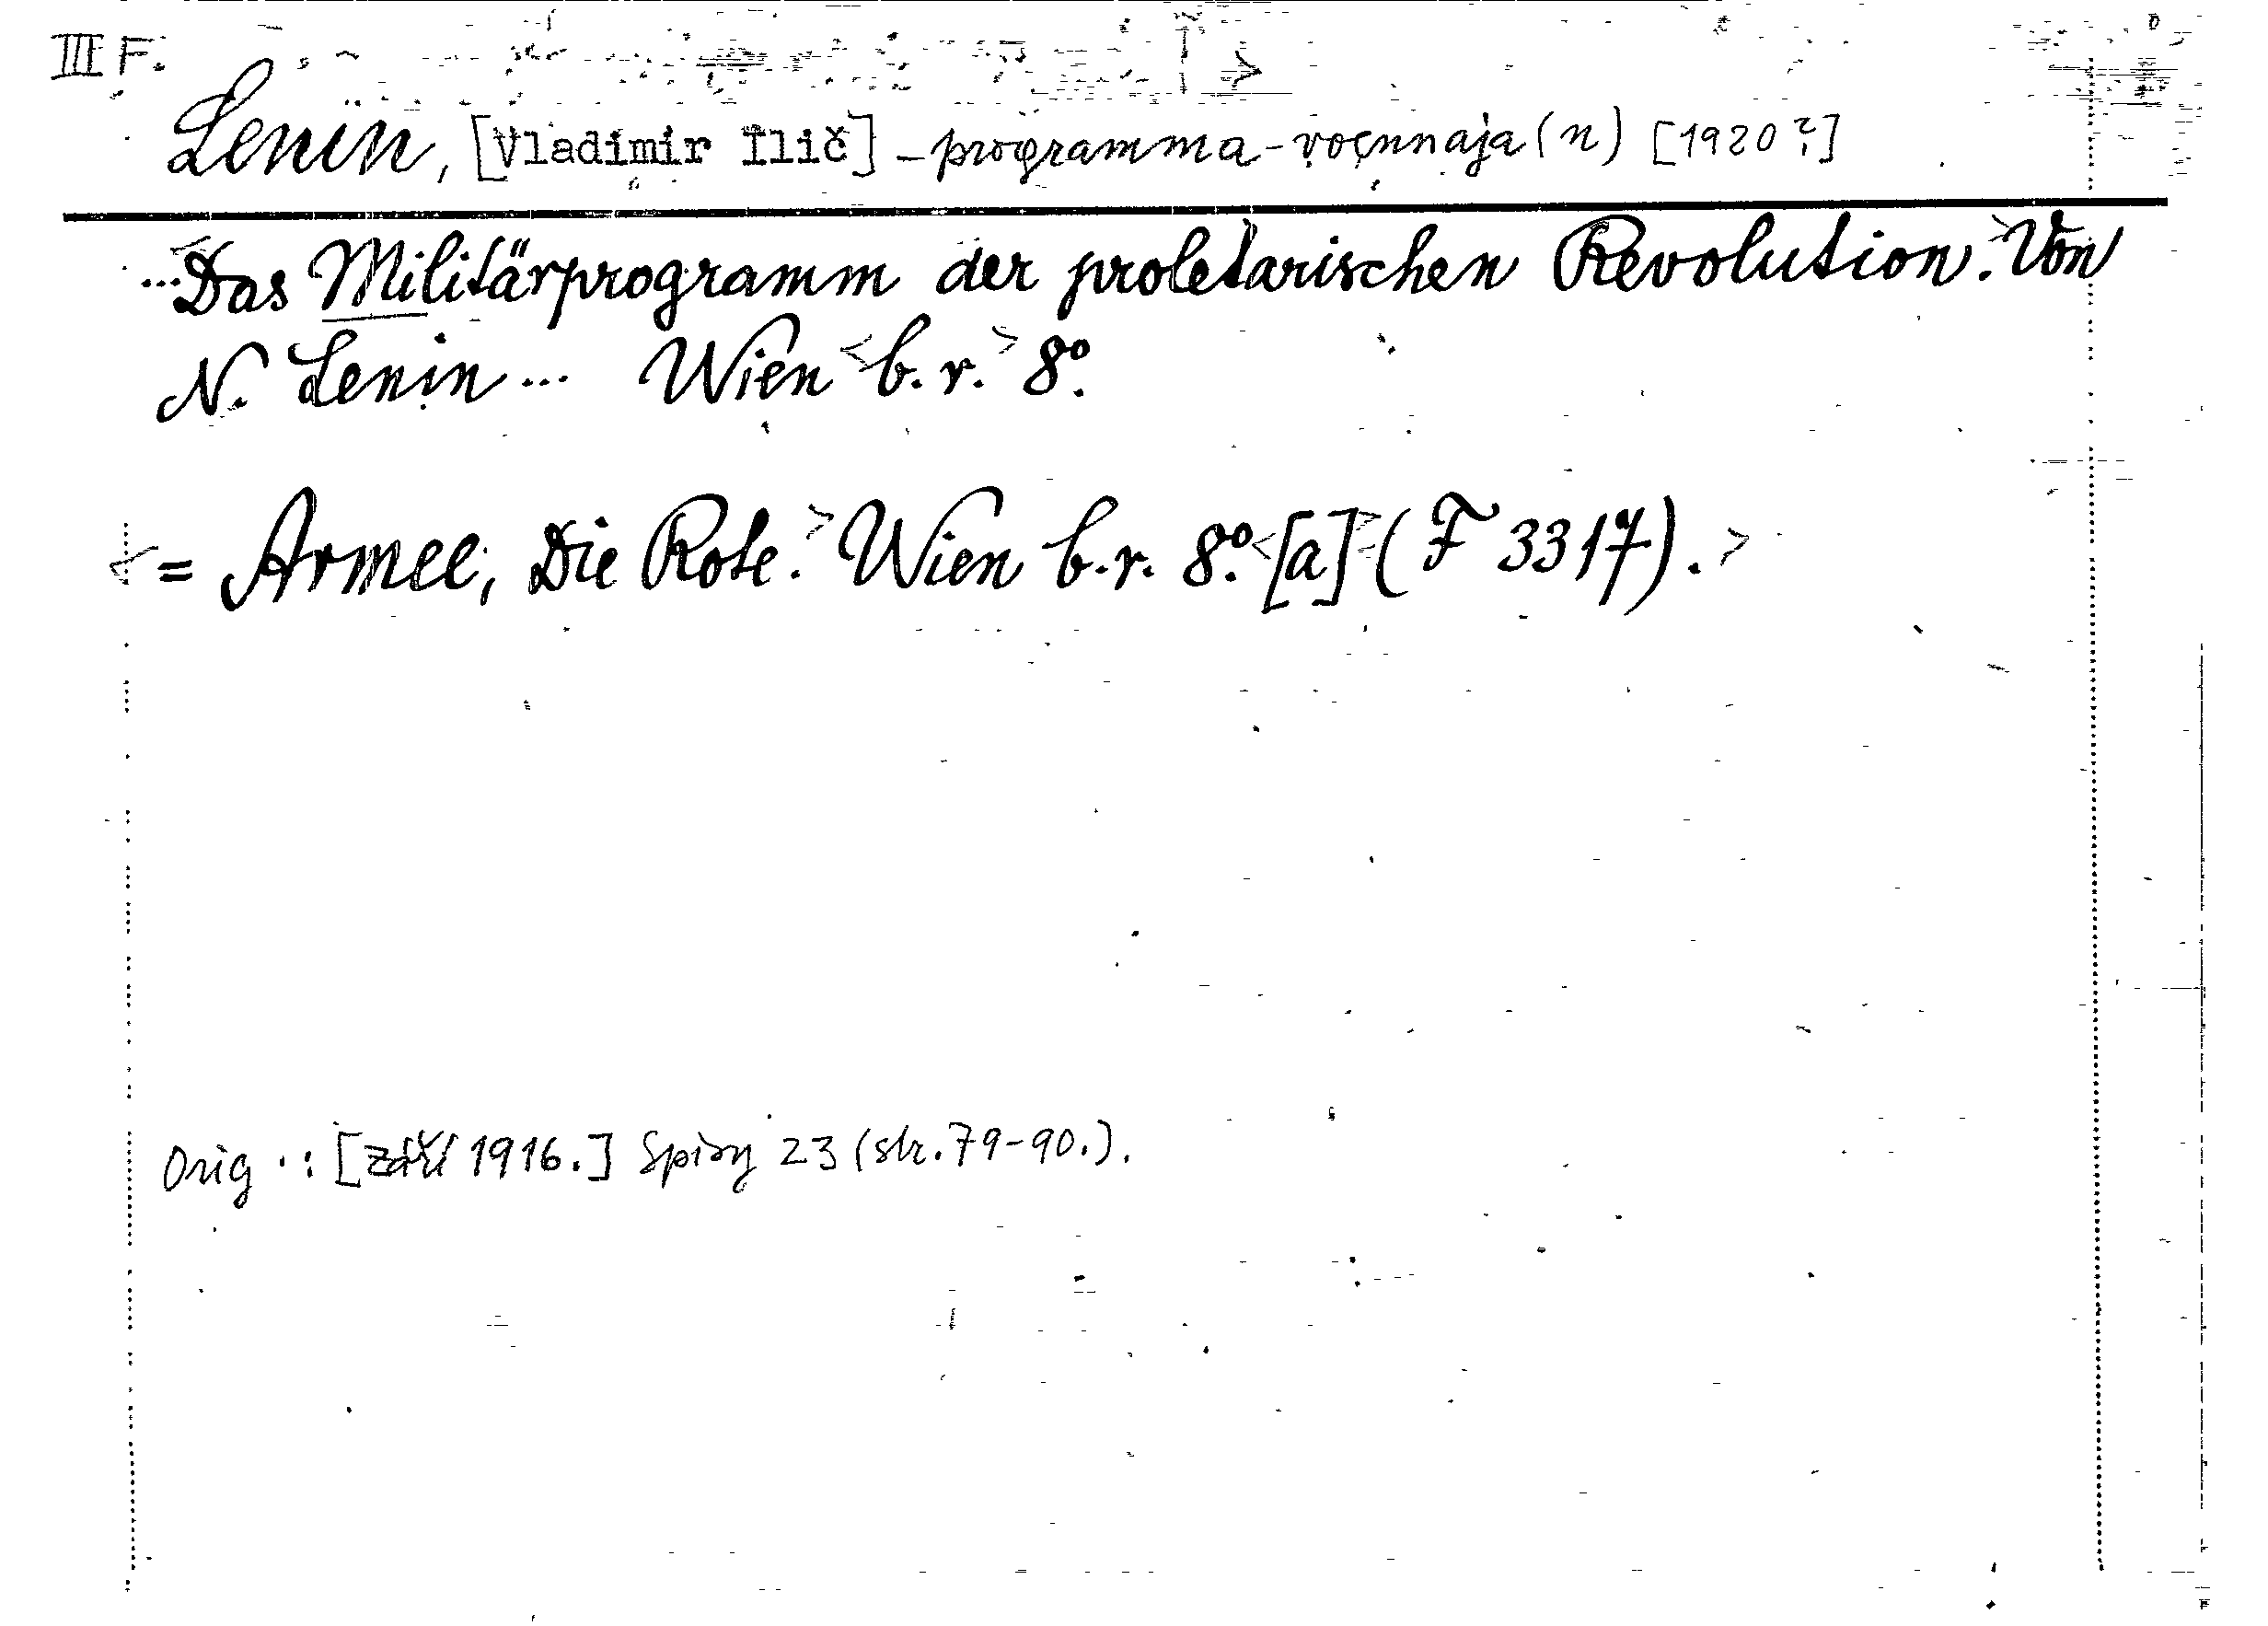 III F.
Lenin, [Vladimir Ilič] - programma - voennaja (n) [1920?]
...<Das Militärprogramm der proletarischen Revolution.> Von
N. Lenin ... Wien <b. r.> 8°.
<= Armee, Die Rote.> Wien b. r. 8°. <[a]> (F 3317). >
Orig.: [září 1916.] Spisy 23 (str. 79-90.).